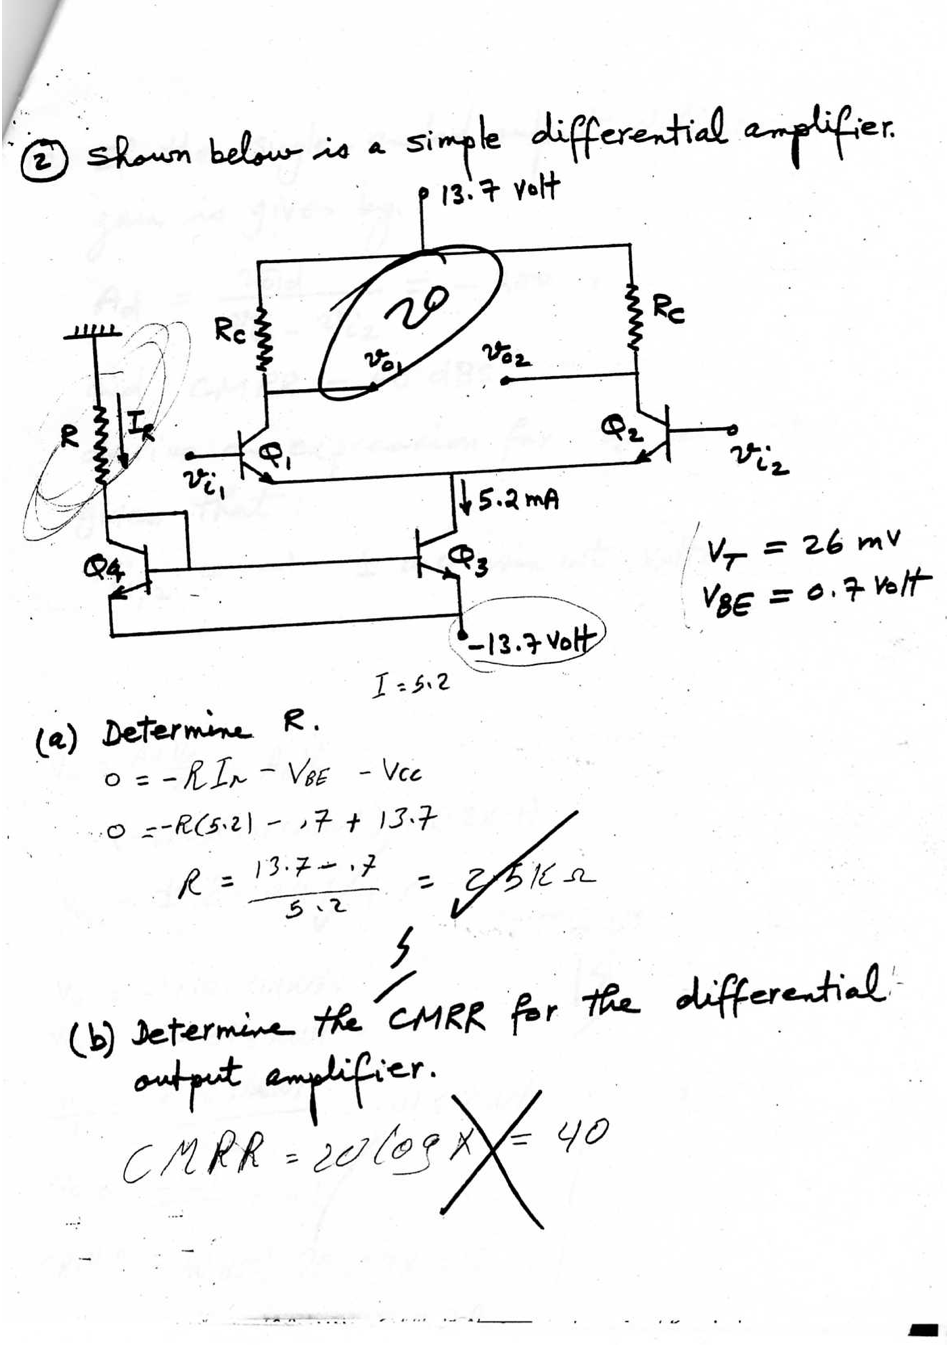 ② Shown below is a simple differential amplifier.
13.7 volt
20
Rc
Rc
vo1
vo2
R
IR
Q1
Q2
vi1
vi2
5.2 mA
Q4
Q3
VT = 26 mv
VBE = 0.7 volt
-13.7 volt
I = 5.2
(a) Determine R.
0 = -R IR - VBE - Vcc
0 = -R(5.2) - .7 + 13.7
R = 13.7 - .7 / 5.2 = 2.5K Ω
5
(b) Determine the CMRR for the differential
output amplifier.
CMRR = 20 log X = 40